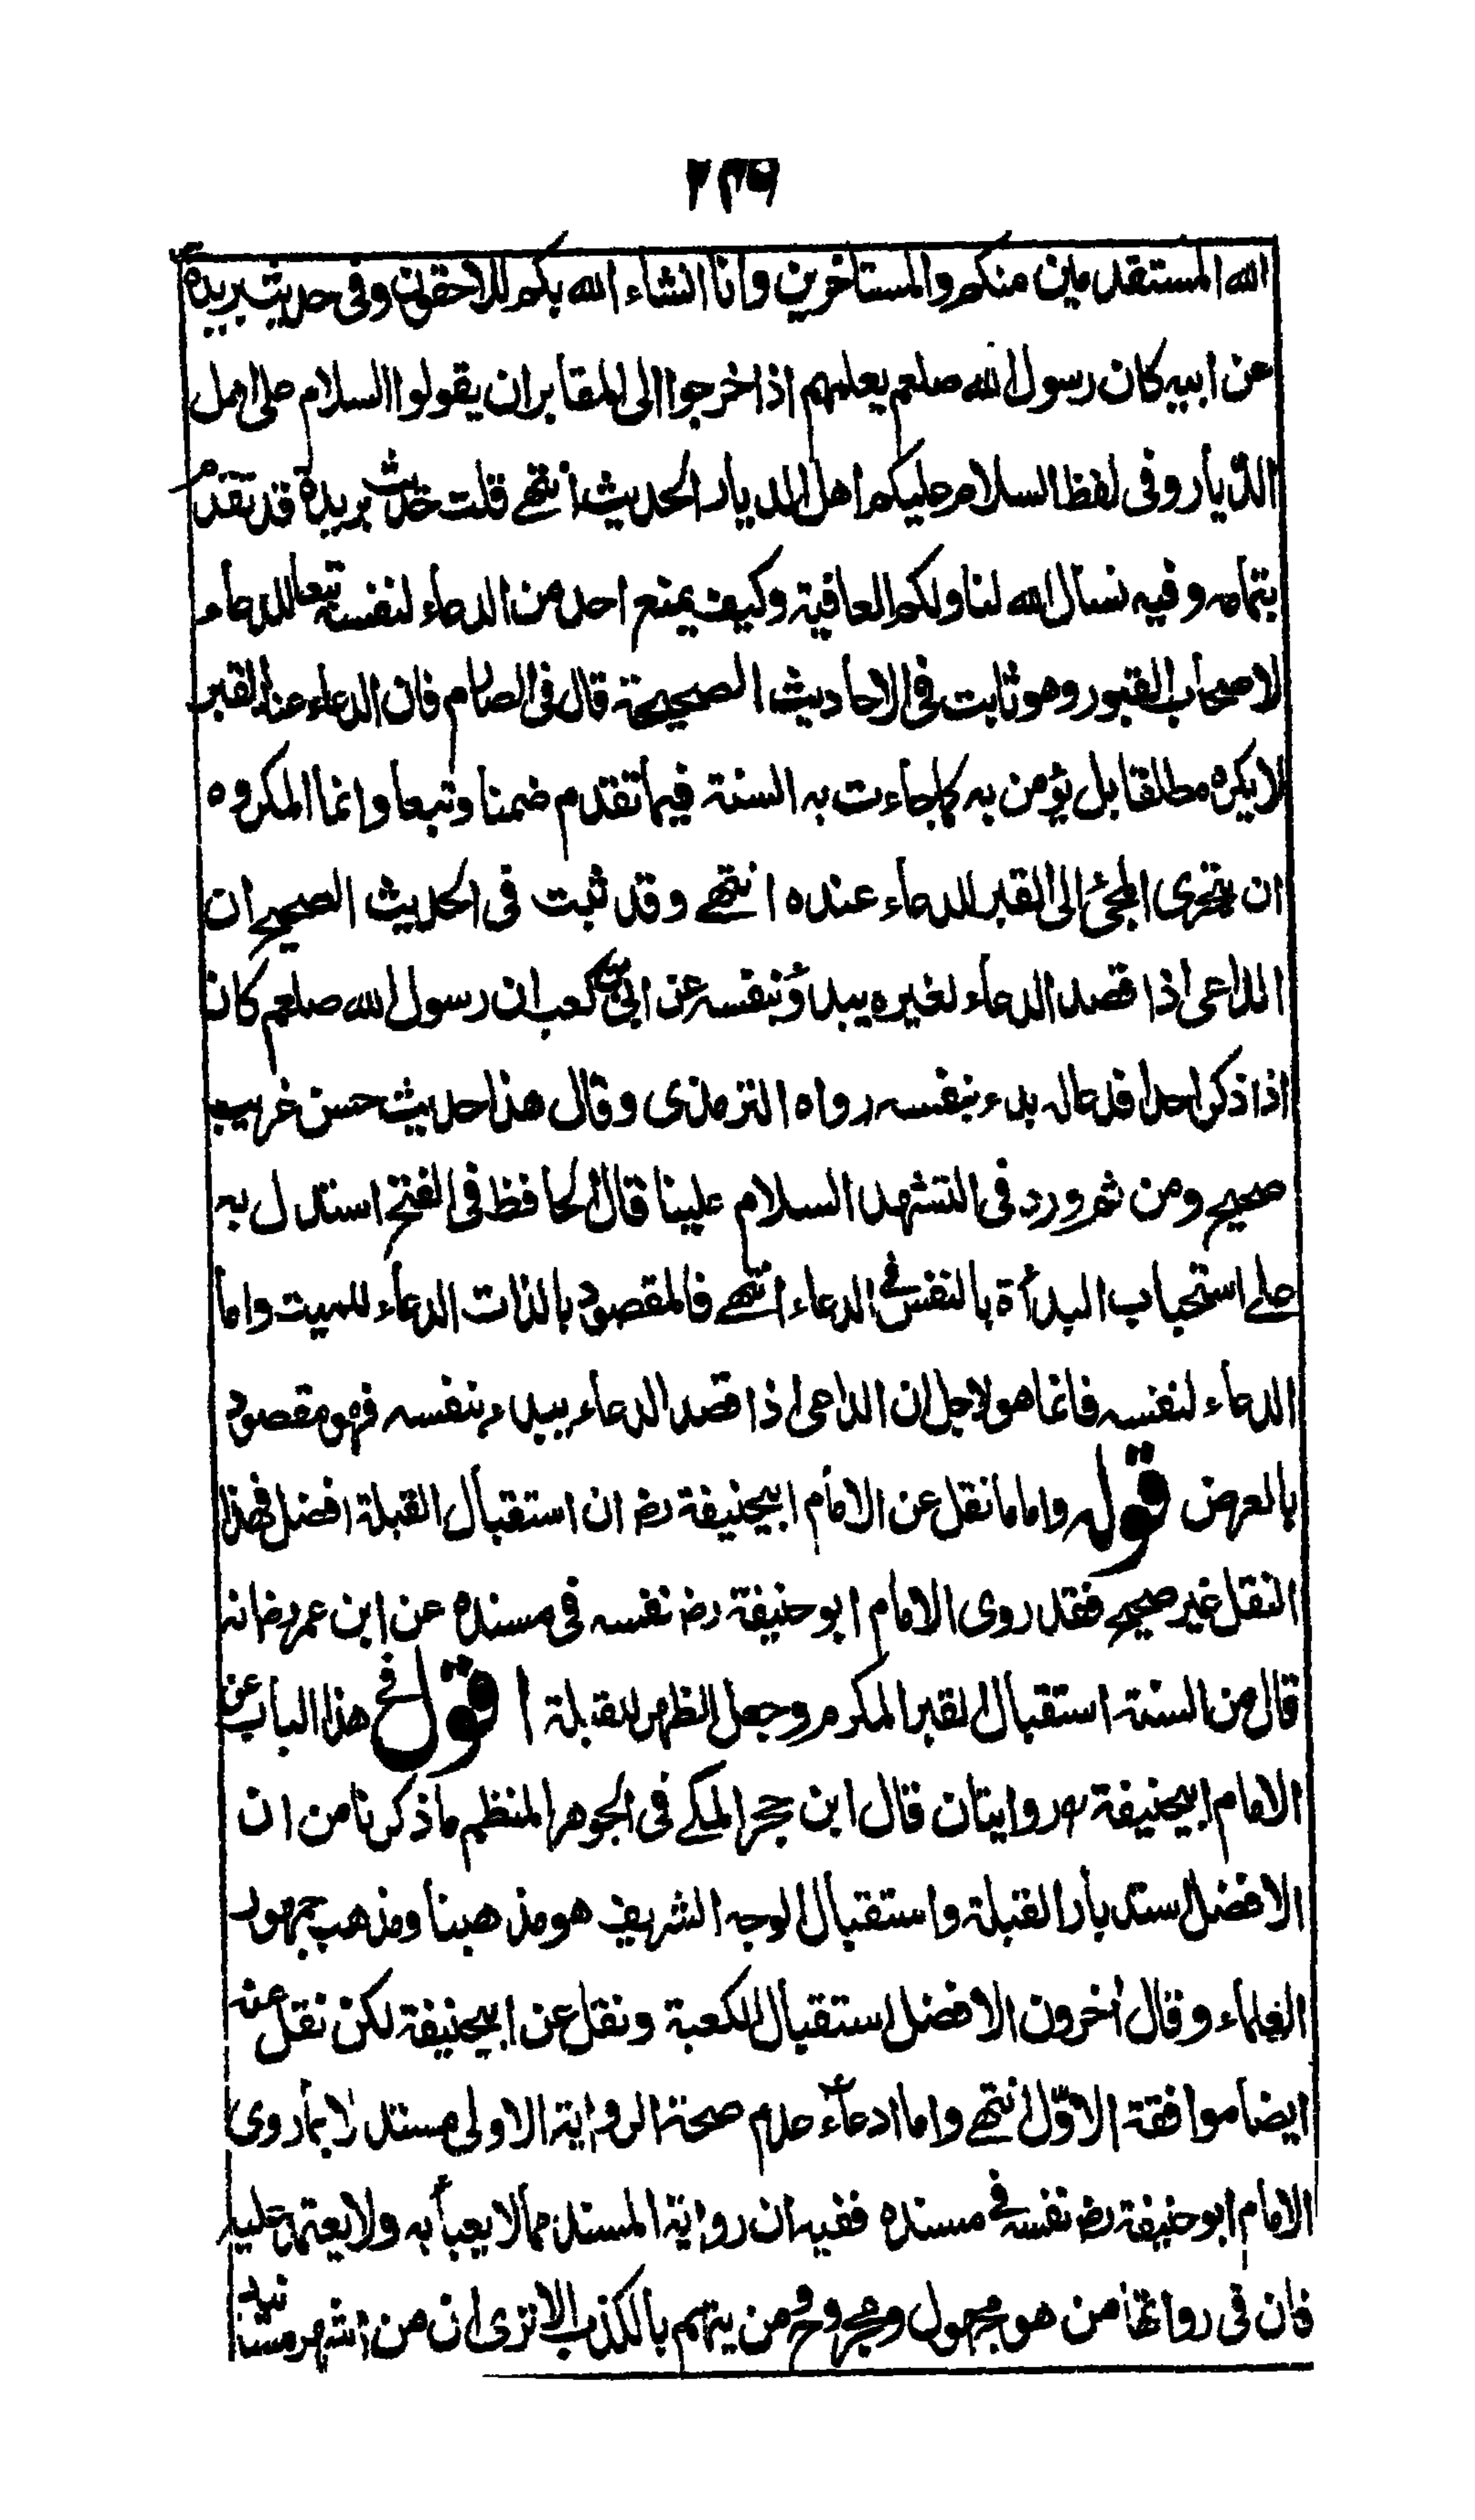 ٢٣٦
الله المستقدمين منكم والمستاخرين وانا انشاء الله بكم للاحقون وفى حديث بريدة
عن ابيه كان رسول الله صلعم يعلمهم اذا خرجوا الى المقابر ان يقولوا السلام على اهل
الديار وفى لفظ السلام عليكم اهل الديار الحديث انتهى قلت حديث بريدة قد تقدم
بتمامه وفيه نسال الله لنا ولكم العافية وكيف يمنع احد من الدعاء لنفسه تبعا للدعاء
لاصحاب القبور وهو ثابت فى الاحاديث الصحيحة قال فى الصارم فان الدعاء عند القبر
لا يكره مطلقا بل يؤمن به كما جاءت به السنة فيما تقدم ضمنا وتبعا وانما المكروه
ان يتحرى المجئ الى القبر للدعاء عنده انتهى وقد ثبت فى الحديث الصحيح ان
الداعى اذا قصد الدعاء لغيره يبدؤ بنفسه عن ابى بن كعب ان رسول الله صلعم كان
اذا ذكر احدا فدعا له بدء بنفسه رواه الترمذى وقال هذا حديث حسن غريب
صحيح ومن ثم ورد فى التشهد السلام علينا قال الحافظ فى الفتح استدل به
على استحباب البدأة بالنفس فى الدعاء انتهى فالمقصود بالذات الدعاء للميت واما
الدعاء لنفسه فانما هو لاجل ان الداعى اذا قصد الدعاء يبدء بنفسه فهو مقصود
بالعرض قوله واما ما نقل عن الامام ابيحنيفة رض ان استقبال القبلة افضل فهذا
النقل غير صحيح فقد روى الامام ابو حنيفة رض نفسه فى مسنده عن ابن عمر رض انه
قال من السنة استقبال القبر المكرم وجعل الظهر للقبلة اقول فى هذا الباب عن
الامام ابيحنيفة رح روايتان قال ابن حجر المكى فى الجوهر المنظم ما ذكرنا من ان
الافضل استدبار القبلة واستقبال الوجه الشريف هو مذهبنا ومذهب جمهور
العلماء وقال أخرون الافضل استقبال الكعبة ونقل عن ابيحنيفة لكن نقل عنه
ايضا موافقة الاوّل انتهى واما ادعاء عدم صحة الرواية الاولى مستدلا بما روى
الامام ابو حنيفة رض نفسه فى مسنده ففيه ان رواية المسند مما لا يعبأ به ولا يعتمد عليه
فان فى رواتها من هو مجهول ومجروح ومن يتهم بالكذب الا ترى ان من اشهر مسانيده